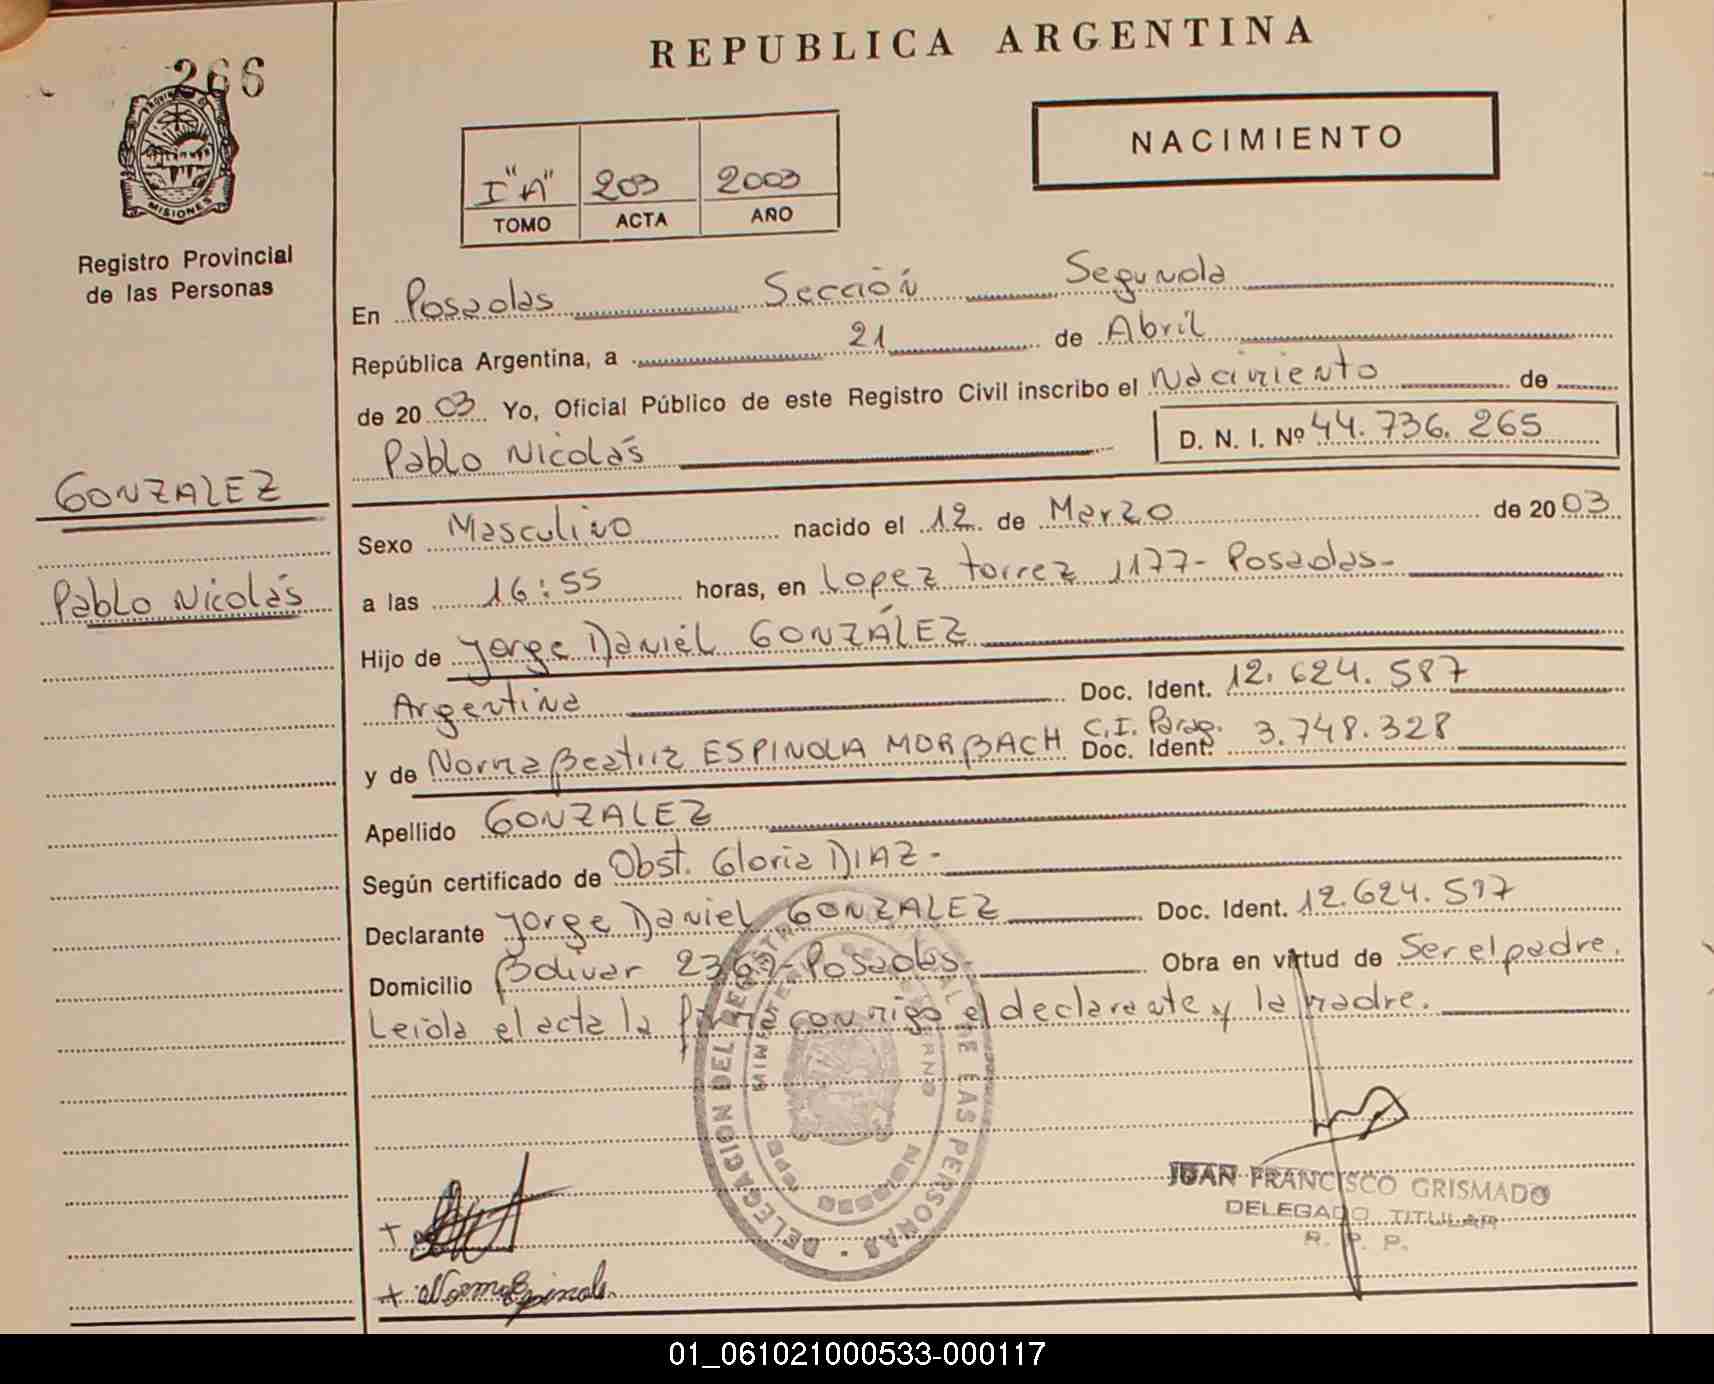 266
MISIONES
Registro Provincial
de las Personas
GONZALEZ
Pablo Nicolás
REPUBLICA ARGENTINA
NACIMIENTO
I "A" 203 2003
TOMO ACTA AÑO
En Posadas Sección Segunda
República Argentina, a 21 de Abril
de 20 03 Yo, Oficial Público de este Registro Civil inscribo el Nacimiento de
Pablo Nicolás D. N. I. Nº 44.736.265
Sexo Masculino nacido el 12 de Marzo de 20 03
a las 16:55 horas, en Lopez torrez 1177- Posadas-
Hijo de Jorge Daniel GONZÁLEZ
Argentina Doc. Ident. 12.624.587
C.I. Parag.
y de Norma Beatriz ESPINOLA MORBACH Doc. Ident. 3.748.328
Apellido GONZALEZ
Según certificado de Obst. Gloria DIAZ-
Declarante Jorge Daniel GONZALEZ Doc. Ident. 12.624.597
Domicilio Bolivar - Posadas- Obra en virtud de Ser el padre.
Leida el acta la firma conmigo el declarante y la madre.
DELEGACION DEL REGISTRO DE LAS PERSONAS
JUAN FRANCISCO GRISMADO
DELEGADO TITULAR
R. P. P.
+
+ Norma Espinola
01_061021000533-000117